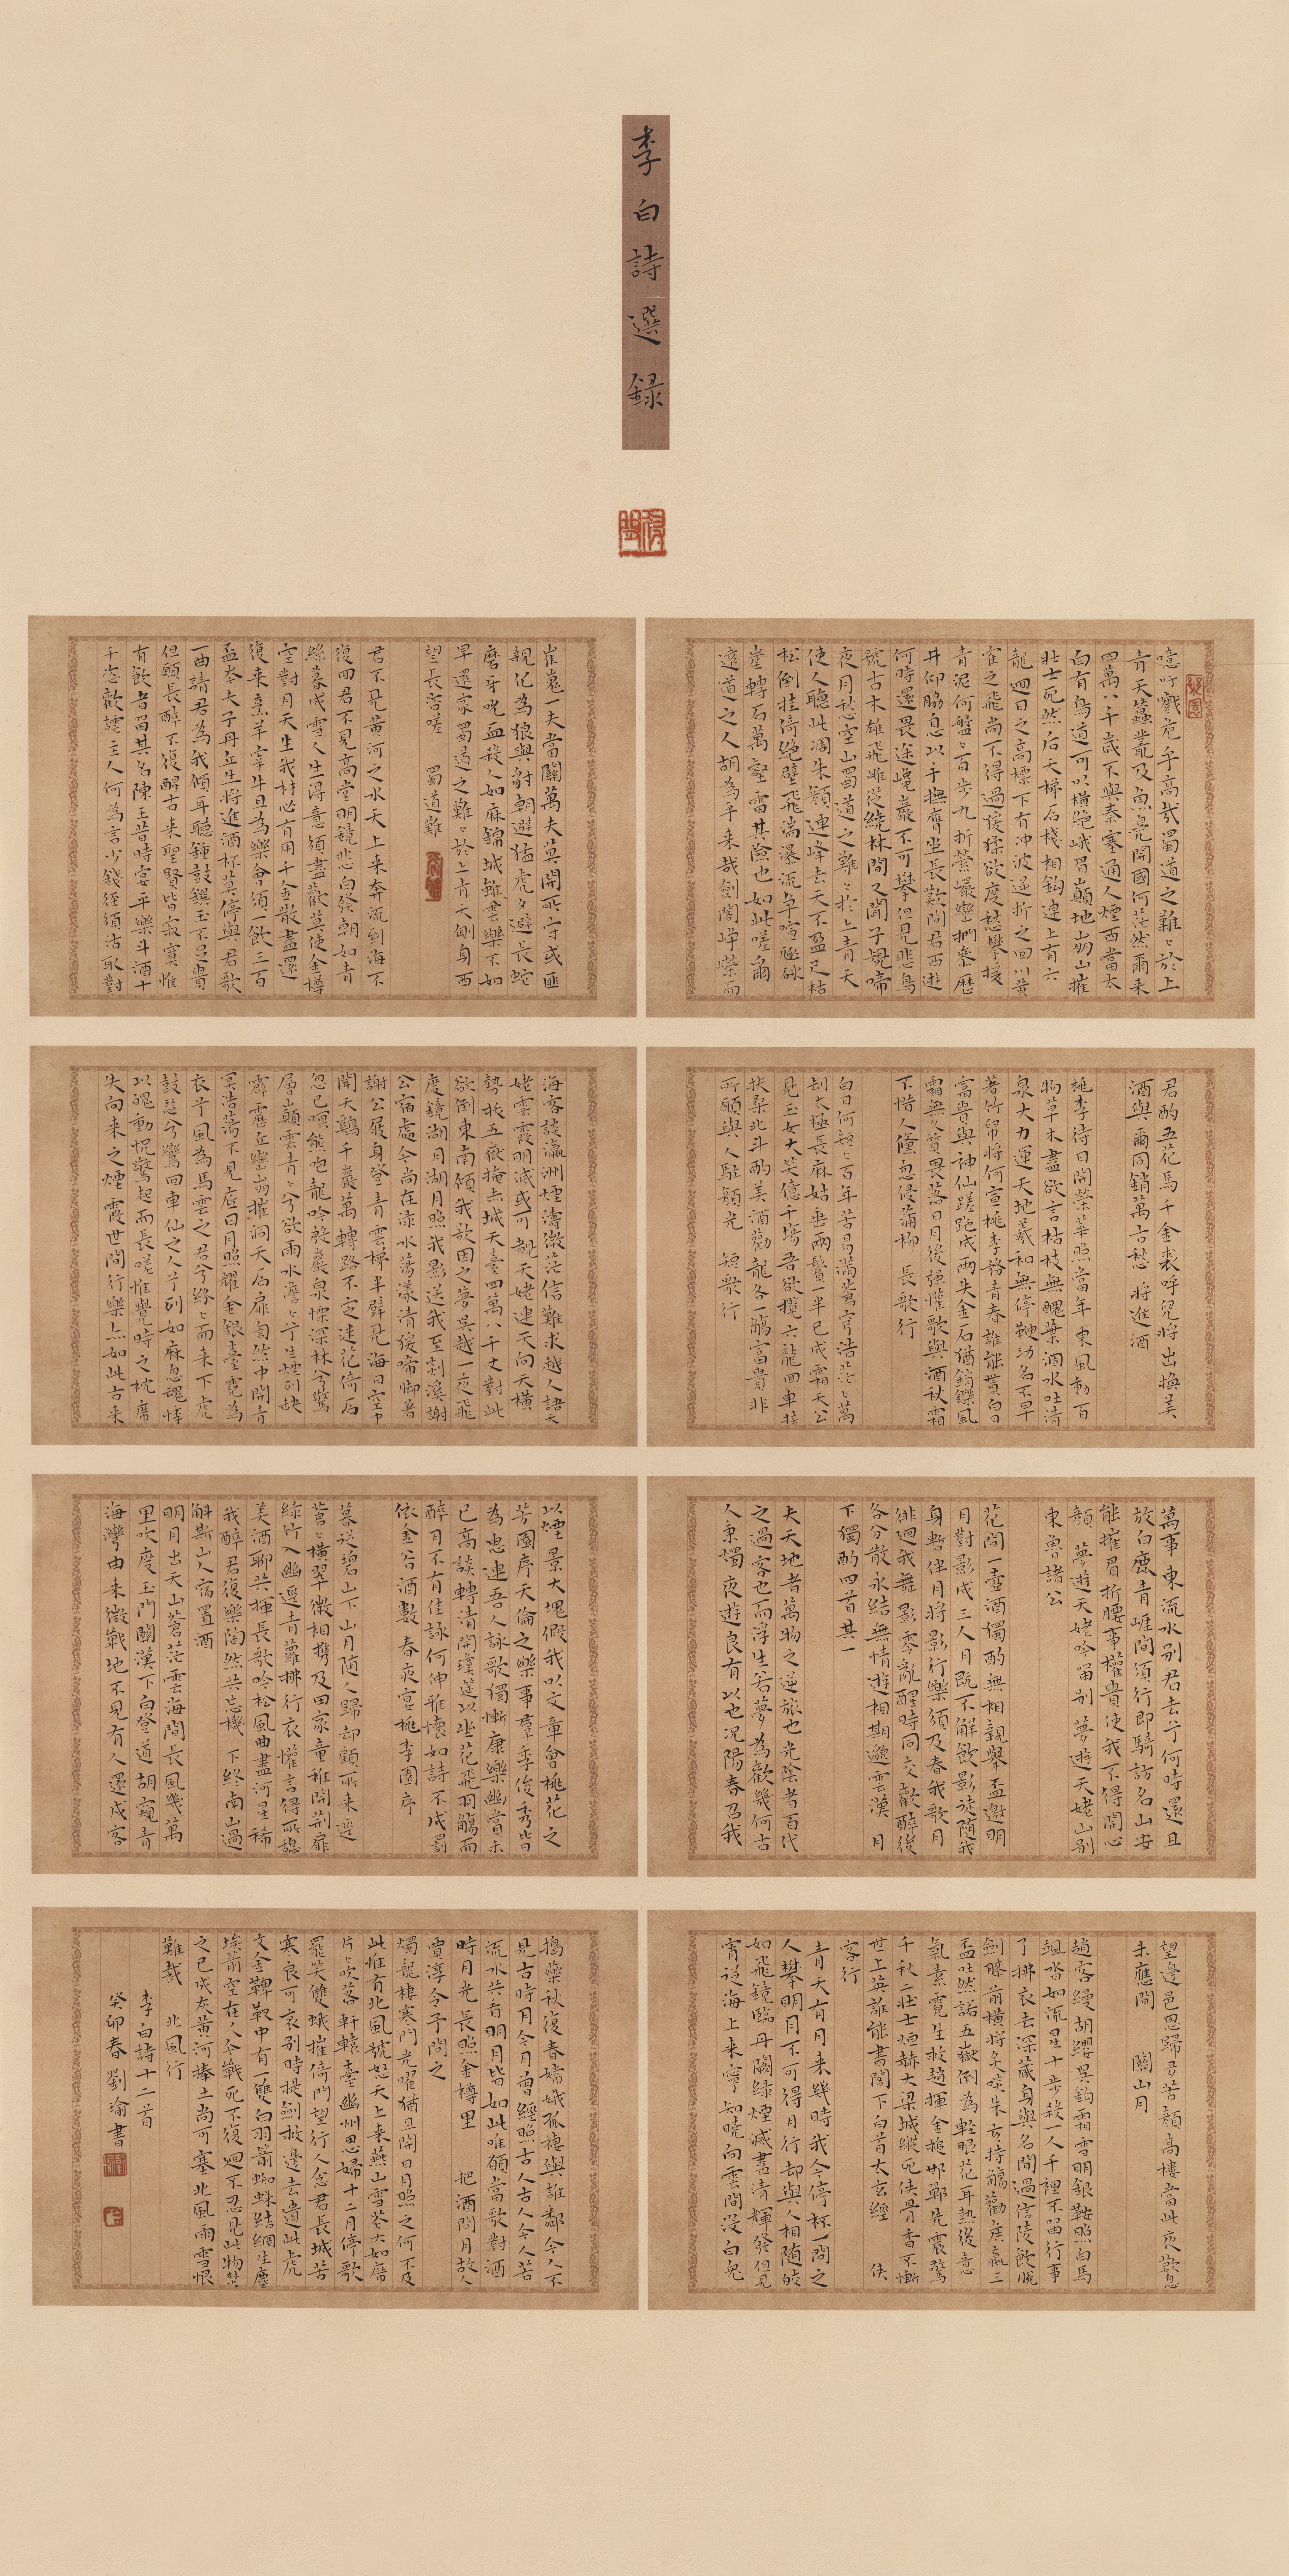 李白詩選録
噫吁戲危乎高哉蜀道之難〻於上
青天蠶叢及魚鳧開國何茫然爾来
四萬八千歲不與秦塞通人煙西當太
白有鳥道可以橫絶峨眉巔地崩山摧
壯士死然后天梯石棧相鈎連上有六
龍迴日之高標下有沖波逆折之回川黃
崔之飛尚不得過猨猱欲度愁攀援
青泥何盤〻百步九折縈巖巒捫參歷
井仰脇息以手撫膺坐長歎問君西遊
何時還畏途巉巖不可攀但見悲鳥
號古木雄飛雌從繞林間又聞子規啼
夜月愁空山蜀道之難〻於上青天
使人聽此凋朱顏連峰去天不盈尺枯
松倒挂倚絶壁飛湍瀑流爭喧豗砯
崖轉石萬壑雷其險也如此嗟爾
遠道之人胡為乎来哉劍閣崢嶸而
崔嵬一夫當關萬夫莫開所守或匪
親化為狼與豺朝避猛虎夕避長蛇
磨牙吮血殺人如麻錦城雖雲樂不如
早還家蜀道之難〻於上青天側身西
望長咨嗟 蜀道難
君不見黃河之水天上来奔流到海不
復回君不見高堂明鏡悲白發朝如青
絲暮成雪人生得意須盡歡莫使金樽
空對月天生我材必有用千金散盡還
復来烹羊宰牛且為樂會須一飲三百
盃岑夫子丹丘生將進酒杯莫停與君歌
一曲請君為我傾耳聽鍾鼓饌玉不足貴
但願長醉不復醒古来聖賢皆寂寞惟
有飲者留其名陳王昔時宴平樂斗酒十
千恣歡謔主人何為言少錢徑須沽取對
君酌五花馬千金裘呼兒將出換美
酒與爾同銷萬古愁 將進酒
桃李待日開榮華照當年東風動百
物草木盡欲言枯枝無醜葉涸水吐清
泉大力運天地羲和無停鞭功名不早
著竹帛將何宣桃李務青春誰能貰白日
富貴與神仙蹉跎成兩失金石猶銷鑠風
霜無久質畏落日月後強懽歌與酒秋霜
不惜人儵忽侵蒲柳 長歌行
白日何短〻百年苦易滿蒼穹浩茫〻萬
劫太極長麻姑垂兩鬢一半已成霜天公
見玉女大笑億千場吾欲攬六龍回車挂
扶桑北斗酌美酒勸龍各一觴富貴非
所願與人駐顏光 短歌行
海客談瀛洲煙濤微茫信難求越人語天
姥雲霞明滅或可覩天姥連天向天橫
勢拔五嶽掩赤城天臺四萬八千丈對此
欲倒東南傾我欲因之夢吳越一夜飛
度鏡湖月湖月照我影送我至剡溪謝
公宿處今尚在淥水蕩漾清猨啼腳著
謝公屐身登青雲梯半壁見海日空中
聞天鷄千巖萬轉路不定迷花倚石
忽已暝熊咆龍吟殷巖泉慄深林兮驚
層巔雲青〻兮欲雨水澹〻兮生煙列缺
霹靂丘巒崩摧洞天石扉訇然中開青
冥浩蕩不見底日月照耀金銀臺霓為
衣兮風為馬雲之君兮紛〻而来下虎
鼓瑟兮鸞回車仙之人兮列如麻忽魂悸
以魄動怳驚起而長嗟惟覺時之枕席
失向来之煙霞世間行樂亦如此古来
萬事東流水别君去兮何時還且
放白鹿青崖間須行即騎訪名山安
能摧眉折腰事權貴使我不得開心
顏 夢遊天姥吟留别 夢遊天姥山别
東魯諸公
花間一壺酒獨酌無相親舉盃邀明
月對影成三人月既不解飲影徒隨我
身暫伴月將影行樂須及春我歌月
徘迴我舞影零亂醒時同交歡醉後
各分散永結無情遊相期邈雲漢 月
下獨酌四首其一
夫天地者萬物之逆旅也光陰者百代
之過客也而浮生若夢為歡幾何古
人秉燭夜遊良有以也况陽春召我
以煙景大塊假我以文章會桃花之
芳園序天倫之樂事羣季俊秀皆
為惠連吾人詠歌獨慚康樂幽賞未
已高談轉清開瓊筵以坐花飛羽觴而
醉月不有佳詠何伸雅懷如詩不成罰
依金谷酒數 春夜宴桃李園序
暮從碧山下山月隨人歸却顧所来逕
蒼〻橫翠微相攜及田家童稚開荆扉
綠竹入幽逕青蘿拂行衣懽言得所憩
美酒聊共揮長歌吟松風曲盡河星稀
我醉君復樂陶然共忘機 下終南山過
斛斯山人宿置酒
明月出天山蒼茫雲海間長風幾萬
里吹度玉門關漢下白登道胡窺青
海灣由来徵戰地不見有人還戍客
望邊邑思歸多苦顏高樓當此夜歎息
未應閒 關山月
趙客縵胡纓吳鈎霜雪明銀鞍照白馬
颯沓如流星十步殺一人千裡不留行事
了拂衣去深藏身與名閒過信陵飲脫
劍膝前橫將炙啖朱亥持觴勸侯嬴三
盃吐然諾五嶽倒為輕眼花耳熱後意
氣素霓生救趙揮金槌邯鄲先震驚
千秋二壯士烜赫大梁城縱死俠骨香不慚
世上英誰能書閣下白首太玄經 俠
客行
青天有月来幾時我今停杯一問之
人攀明月不可得月行却與人相隨皎
如飛鏡臨丹闕綠煙滅盡清輝發但見
宵從海上来寧知曉向雲間沒白兔
搗藥秋復春嫦娥孤棲與誰鄰今人不
見古時月今月曾經照古人古人今人若
流水共看明月皆如此唯願當歌對酒
時月光長照金樽里 把酒問月故人
賈淳令予問之
燭龍棲寒門光曜猶旦開日月照之何不及
此惟有北風號怒天上来燕山雪花大如席
片片吹落軒轅臺幽州思婦十二月停歌
罷笑雙蛾摧倚門望行人念君長城苦
寒良可哀别時提劍救邊去遺此虎
文金鞞靫中有一雙白羽箭蜘蛛結網生塵
埃箭空在人今戰死不復迴不忍見此物焚
之已成灰黃河捧土尚可塞北風雨雪恨
難裁 北風行
李白詩十二首
癸卯春 劉渝書